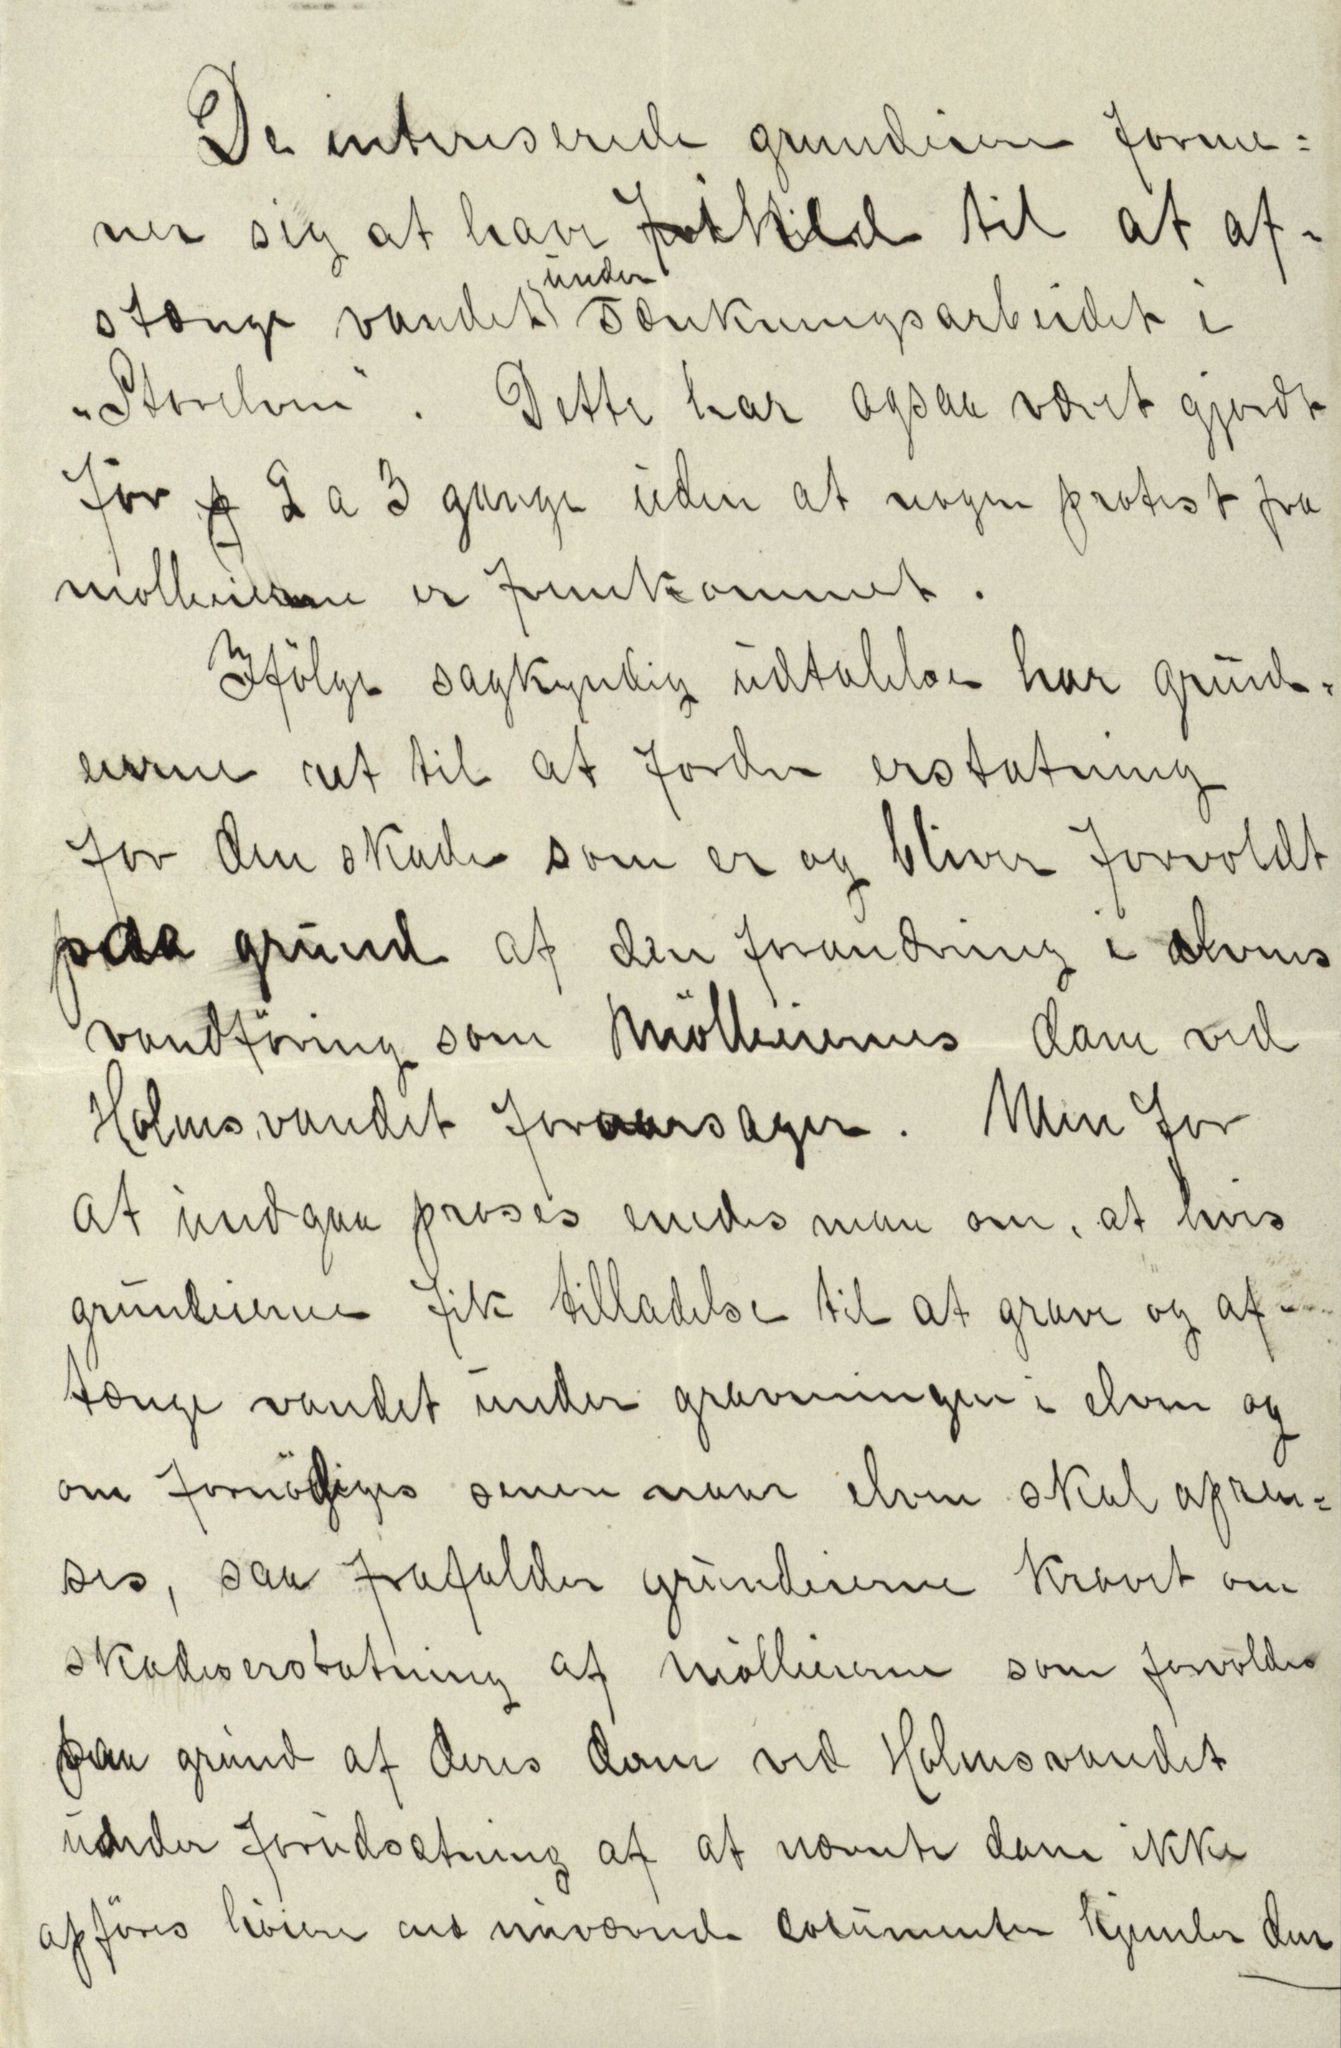 De intereserede grundeiere forme=
ner sig at have til at af-
stænge vandet under sænkningsarbeidet i
"Storelven". Dette har ogsaa været gjordt
før 2 a 3 gange uden at nogen protest fra
mølleierne er fremkommet.
Ifølge sagkyndig udtalelse har grund-
eierne ret til at fordre erstatning
for den skade som er og bliver forvoldt
paa grund af den forandring i elvens
vandføring som Mølleiernes dam ved
Holmsvandet foraarsager. Men for
at undgaa proses enedes man om, at hvis
grundeierne fik tilladelse til at grave og af-
tænge vandet under gravningen i elven og
om fornødiges senere naar elven skal afren=
ses, saa frafalder grundeierne kravet om
skadeserstatning af mølleierne som forvoldes
paa grund af deres dam ved Holmsvandet
under forudsætning af at nævnte dam ikke
opføres høiere end nuværende den